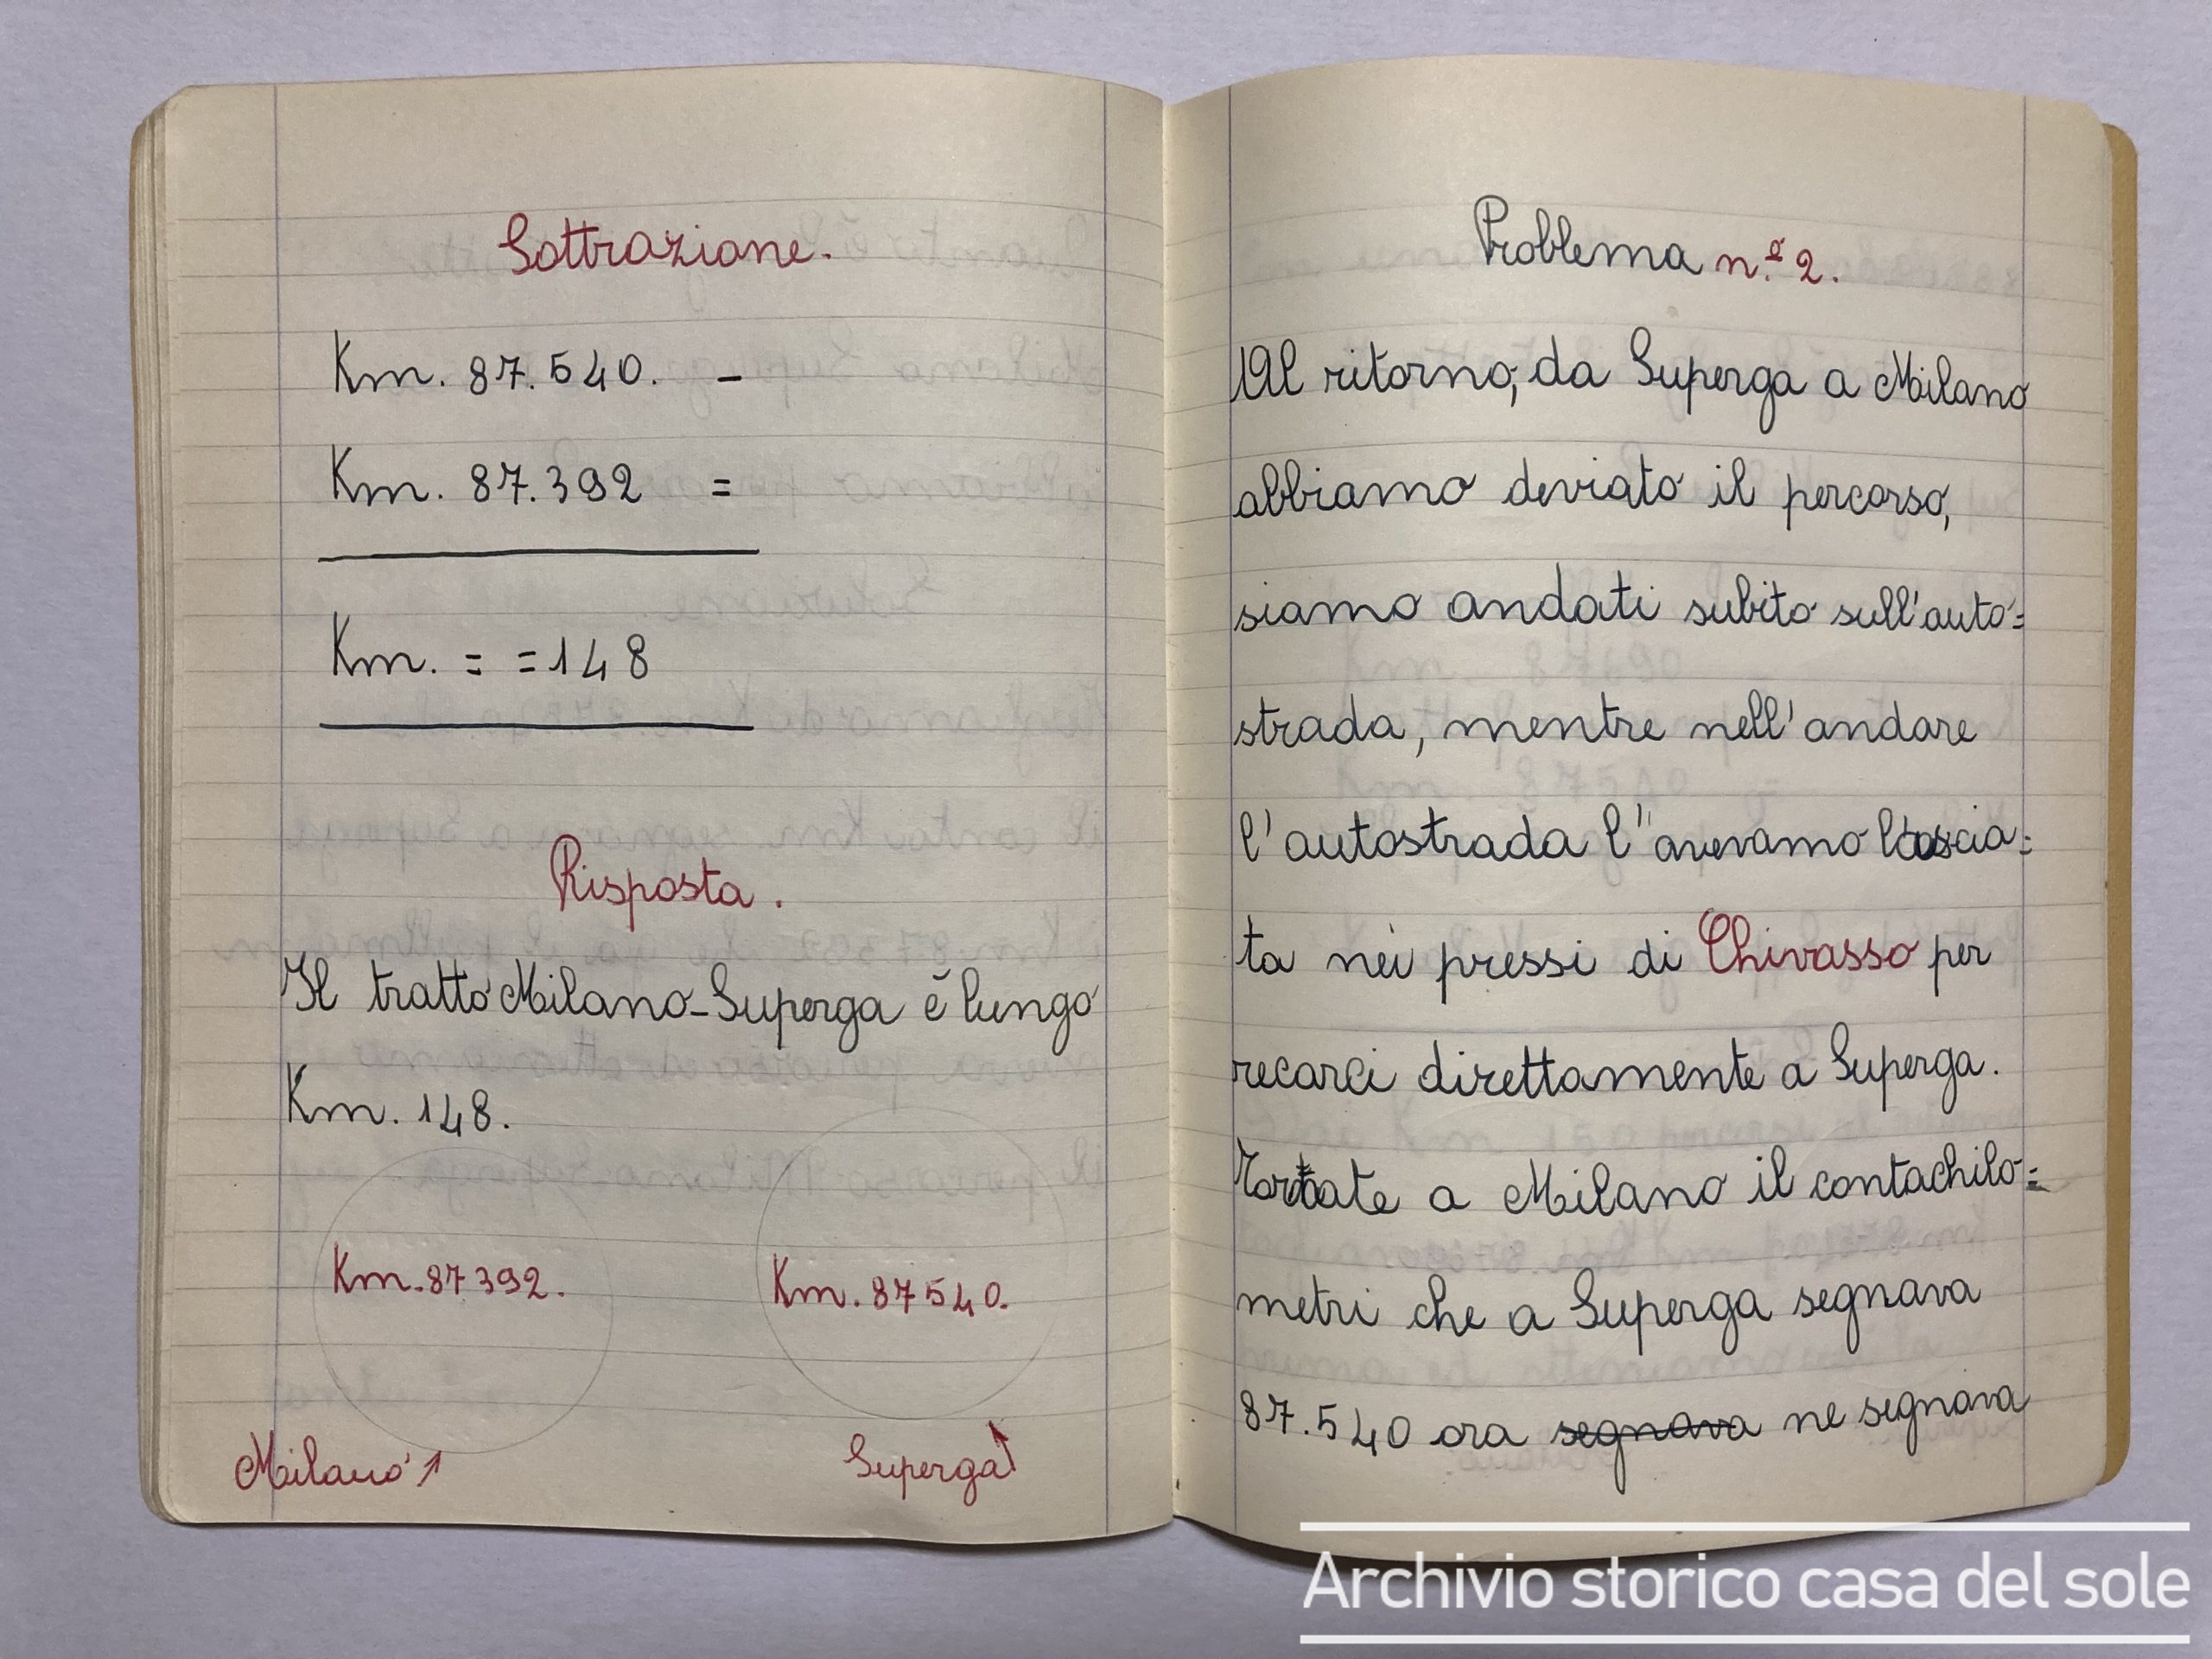 Sottrazione.
Km. 87.540. -
Km. 87.392 =
Km. = =148
Risposta.
Il tratto Milano-Superga è lungo
Km. 148.
Km. 87392.
Km. 87540.
Milano
Superga
Problema n.º 2.
Al ritorno, da Superga a Milano
abbiamo deviato il percorso,
siamo andati subito sull'auto=
strada, mentre nell'andare
l'autostrada l'avevamo lascia=
ta nei pressi di Chivasso per
recarci direttamente a Superga.
a Milano il contachilo=
metri che a Superga segnava
87.540 ora segnava ne segnava
Archivio storico casa del sole